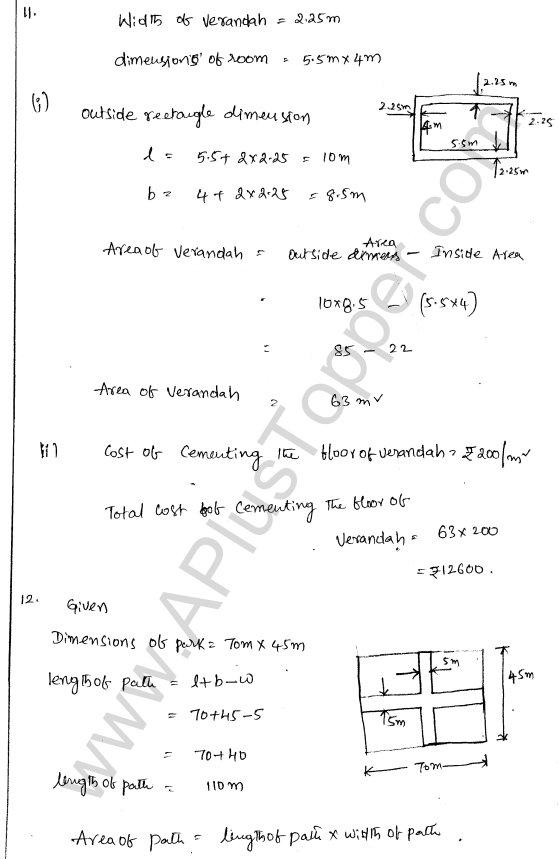 11.
Width of Verandah = 2.25m
dimensions of room = 5.5m x 4m
(i)
outside rectangle dimension
l = 5.5 + 2x2.25 = 10m
b = 4 + 2x2.25 = 8.5m
2.25m
2.25m
2.25
4m
5.5m
2.25m
Area of Verandah = outside Area - Inside Area
10x8.5 - (5.5x4)
= 85 - 22
Area of Verandah = 63 m²
(ii) Cost of Cementing the floor of verandah = ₹200/m²
Total Cost of Cementing the floor of
Verandah = 63 x 200
= ₹12600.
12. Given
Dimensions of park = 70m x 45m
length of path = l+b-w
= 70+45-5
= 70+40
length of path = 110m
5m
45m
5m
70m
Area of path = length of path x width of path.
www.APlusTopper.com